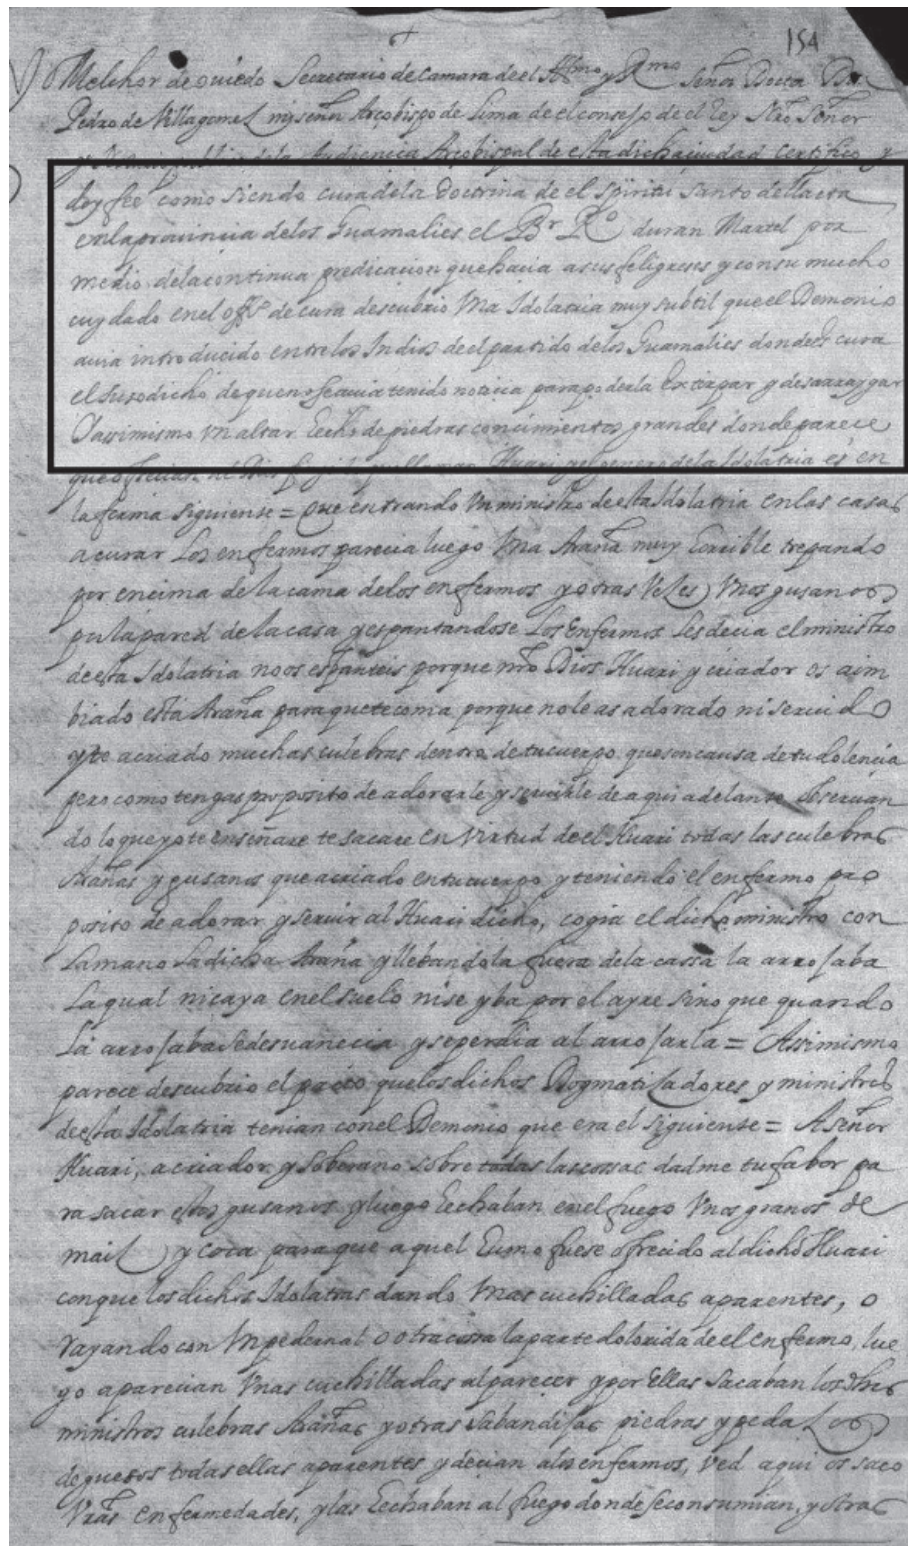 154
Melchor de ouiedo Secretario de Camara de el Illmo y Rmo Señor Doctor Don
Pedro de Villagomes mi señor Arçobispo de Lima de el consejo de el Rey Nro Señor
Audiencia Arçobispal de esta dicha ciudad certifico y
doy fee como siendo cura de la Doctrina de el Spiritu Santo de llacta
en la prouincia de los Guamalies el Br Po duran Martel por
medio de la continua predicacion que hacia a sus feligreses y con su mucho
cuydado en el offo de cura descubrio Vna Idolatria muy subtil que el Demonio
auia introducido entre los Indios de el partido de los Guamalies donde es cura
el Susodicho de que no se auia tenido noticia para poderla Extirpar y desarraygar
Y assimismo Vn altar Eecho de piedras con cimientos grandes donde parece
que ofrecian que llaman Huari y el genero de la Idolatria es en
la forma siguiente = Que entrando Vn ministro de esta Idolatria en las casas
a curar Los enfermos parecia luego Vna Araña muy Eorrible trepando
por encima de la cama de los enfermos y otras Veses Vnos gusanos
por la pared de la casa y espantandose Los Enfermos Les decia el ministro
de esta Idolatria no os espanteis porque nro Dios Huari y criador os a im
biado esta Araña para que te coma porque no le as adorado ni seruido
y te a criado muchas culebras dentro de tu cuerpo que son causa de tu dolencia
pero como tengas proposito de adorarle y seruirle de aqui adelante obseruan
do lo que yo te enseñare te sacare en Virtud de el Huari todas las culebras
Arañas y gusanos que a criado en tu cuerpo y teniendo el enfermo pro
posito de adorar y seruir al Huari dicho, cogia el dicho ministro con
La mano La dicha Araña y lleuandola fuera de la cassa la arrojaba
La qual ni caya en el suelo ni se yba por el ayre sino que quando
La arrojaba se desuanecia y se perdia al arrojarla = Assimismo
parece descubrio el pacto que los dichos Dogmatisadores y ministros
de esta Idolatria tenian con el Demonio que era el siguiente = A señor
Huari, a criador y soberano sobre todas las cossas dadme tu fabor pa
ra sacar estos gusanos y luego Eechaban en el fuego Vnos granos de
mais y coca para que aquel Eumo fuese ofrecido al dicho Huari
con que los dichos Idolatras dando Vnas cuchilladas aparentes, o
rayando con Vn pedernal o otra cossa la parte dolorida de el enfermo, lue
go aparecian Vnas cuchilladas al parecer y por Ellas sacaban los dhos
ministros culebras Arañas y otras sabandijas piedras y pedasos
de guesos todas ellas aparentes y decian a los enfermos, Ved aqui os saco
Vras enfermedades, y las Eechaban al fuego donde se consumian, y otras